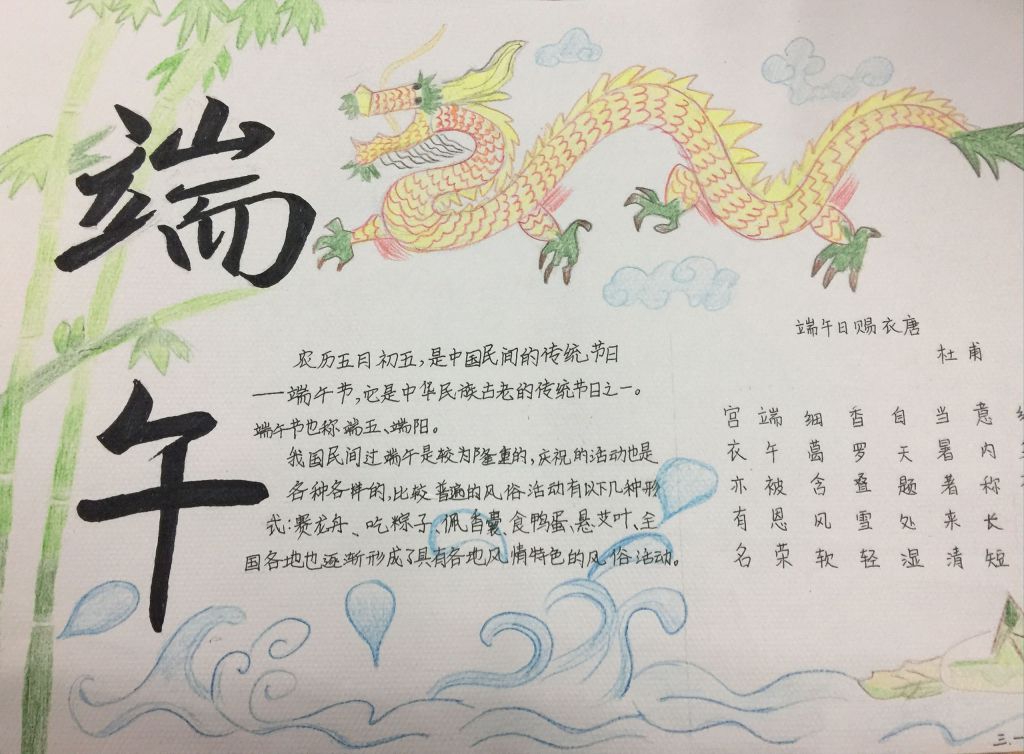 端午
农历五月初五，是中国民间的传统节日
——端午节，它是中华民族古老的传统节日之一。
端午节也称端五、端阳。
我国民间过端午是较为隆重的，庆祝的活动也是
各种各样的，比较普遍的风俗活动有以下几种形
式：赛龙舟、吃粽子、佩香囊、食鸭蛋、悬艾叶、全
国各地也逐渐形成了具有各地风情特色的风俗活动。
端午日赐衣唐
杜甫
宫衣亦有名
端午被恩荣
细葛含风软
香罗叠雪轻
自天题处湿
当暑著来清
意内称长短